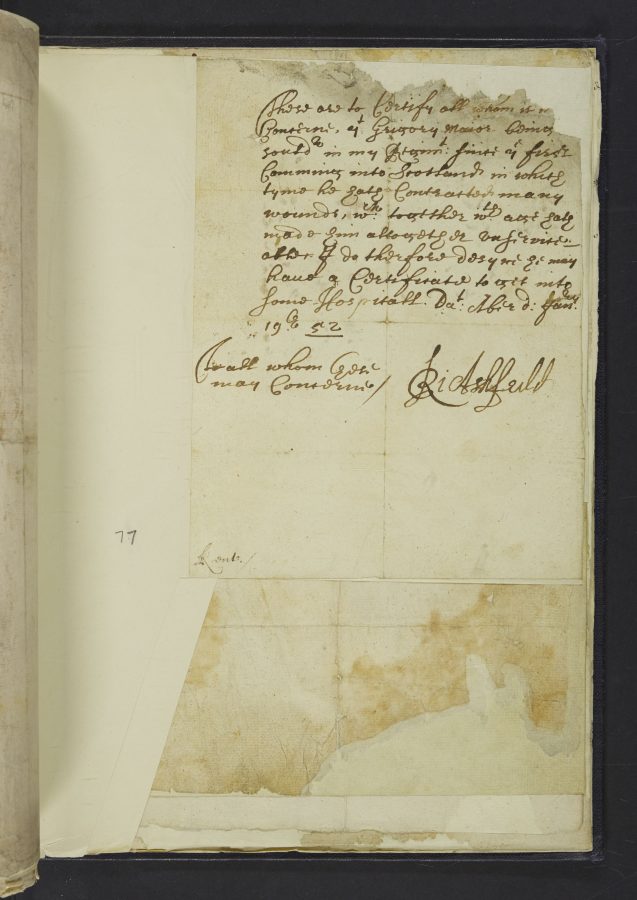 These are to Certify all whom it m
Concerne, yt Grigory Maior being
sould in my Regimt: since ye first
Comming into Scotland in which
tyme he hath Contracted many
wounds, wch together wth age hath
made him altogether unservice=
able I do therefore desyre he may
have a Certificate to get into
some Hospitall. Dat. Aberd: Jan:
19th 52
To all whom these
may Concerne /
Ri Ashfeild
Kent. /
77